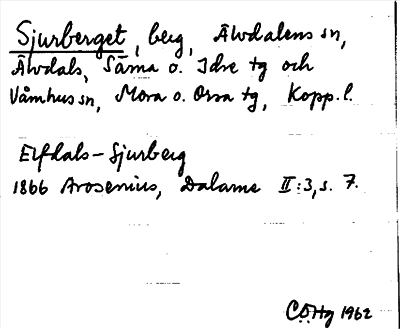 Sjurberget, berg, Älvdalens sn,
Älvdals, Särna o. Idre tg och
Våmhus sn, Mora o. Orsa tg, Kopp. l.
Elfdals-Sjurberg
1866 Arosenius, Dalarne II:3, s. 7.
CÖHg 1962